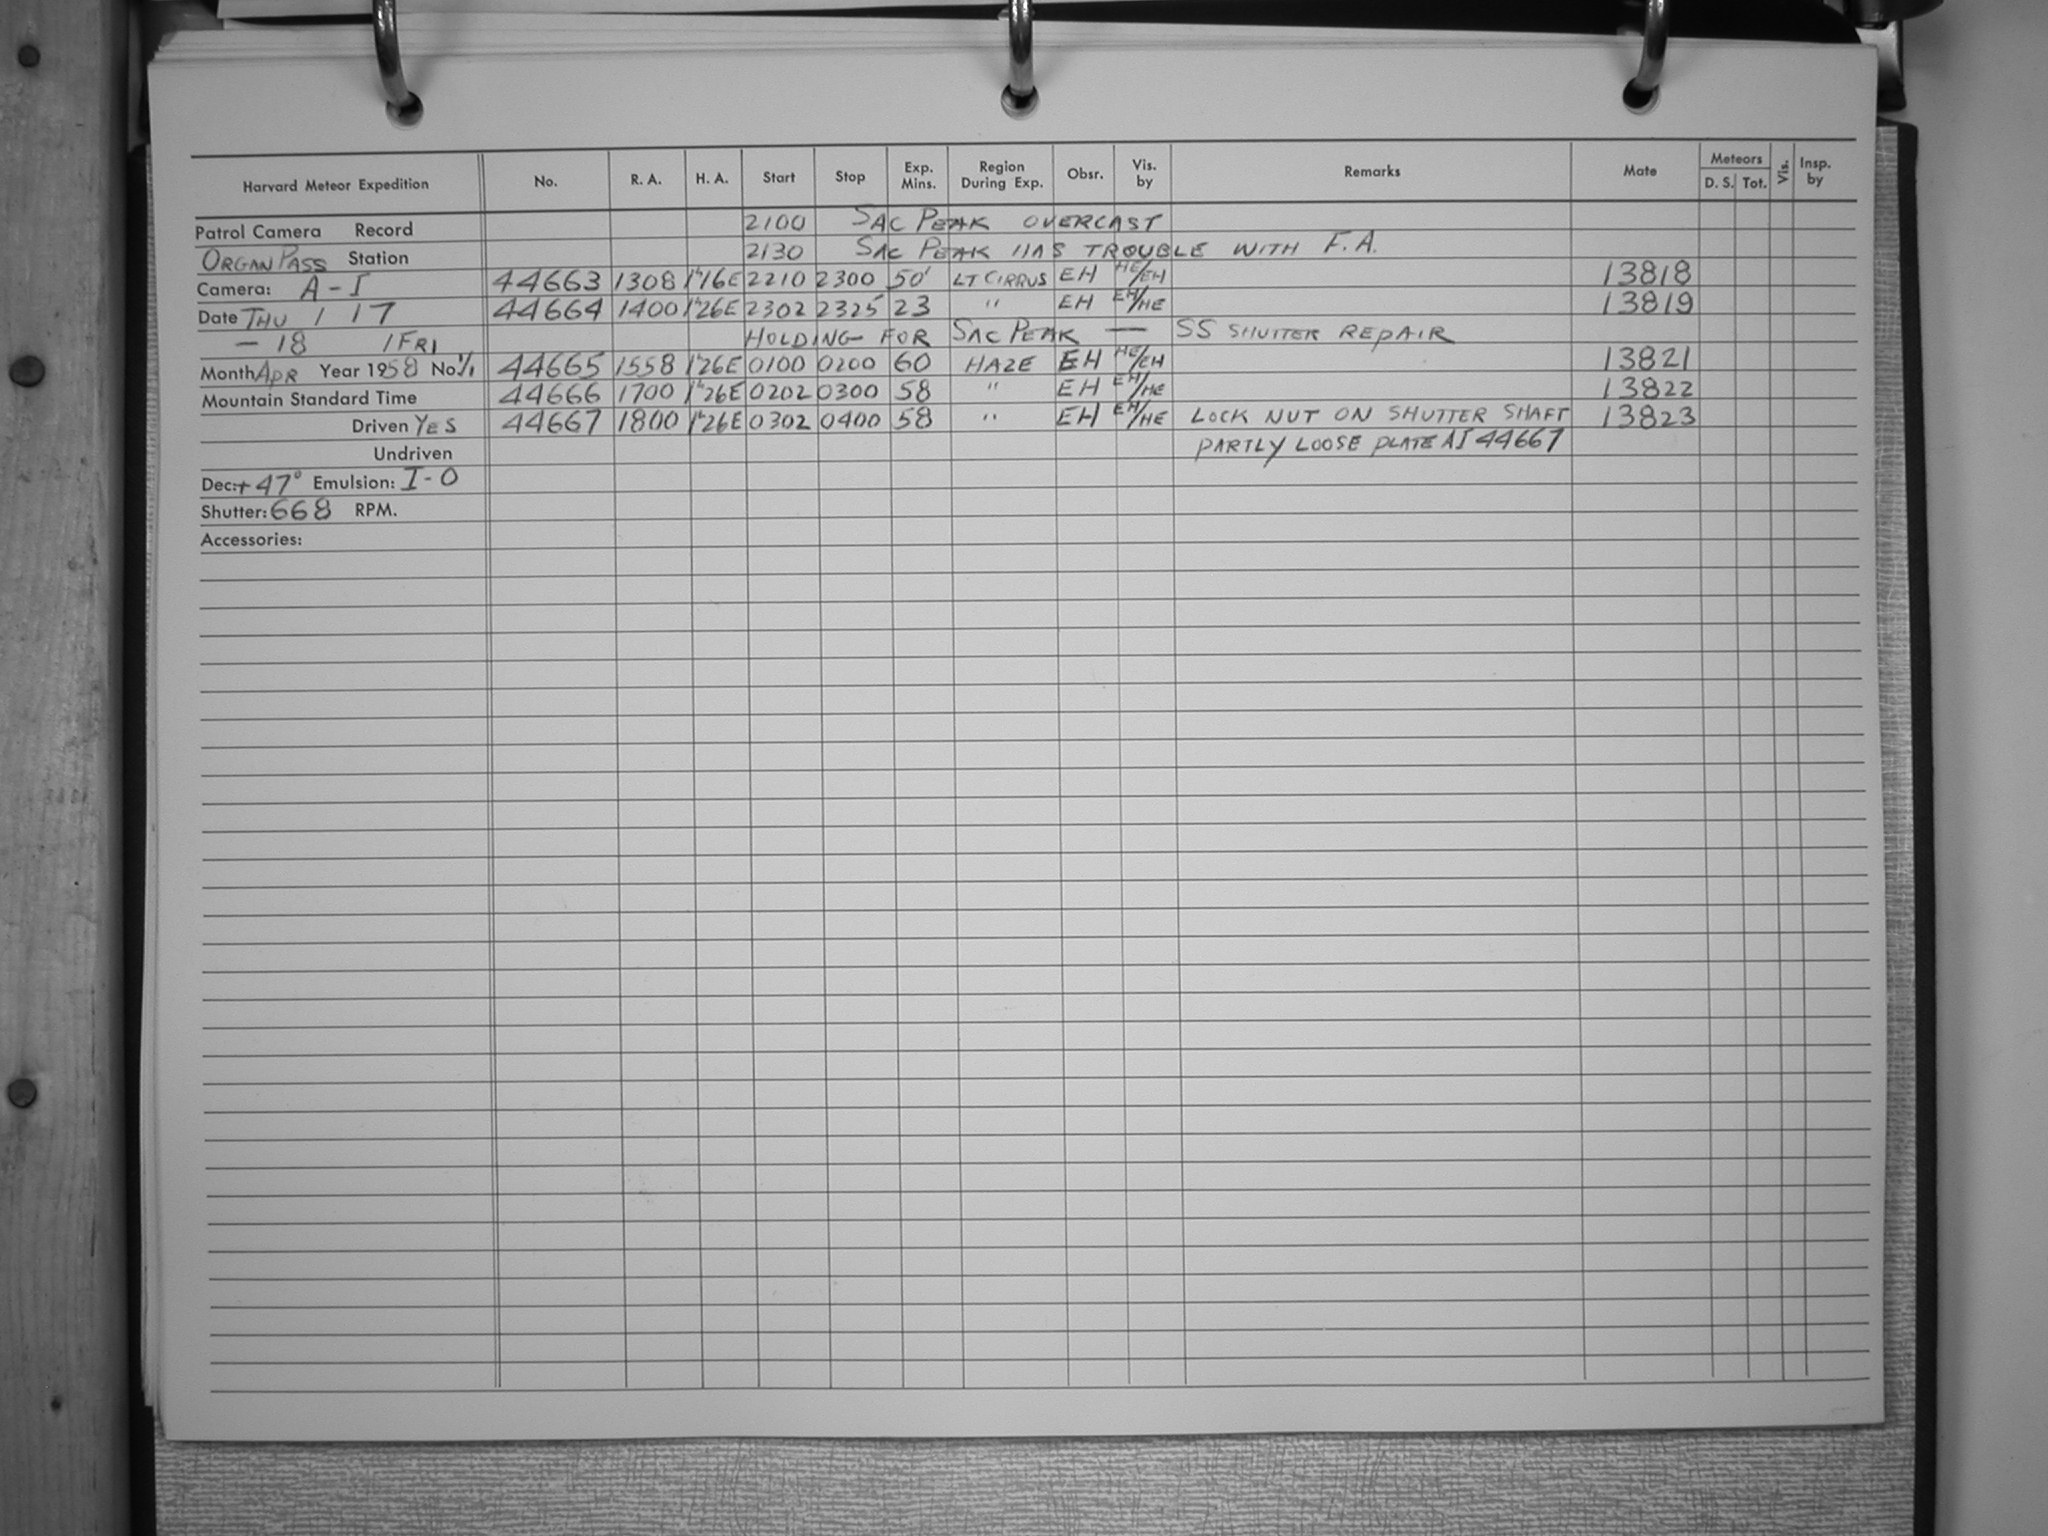 Harvard Meteor Expedition No. R. A. H. A. Start Stop Exp. Mins. Region During Exp. Obsr. Vis. by Remarks Mate Meteors D. S. Tot. Vis. Insp. by
Patrol Camera Record 2100 SAC PEAK OVERCAST
ORGAN PASS Station 2130 SAC PEAK HAS TROUBLE WITH F.A.
Camera: A-I 44663 1308 1h16E 2210 2300 50' LT CIRRUS EH HE/EH 13818
Date THU / 17 44664 1400 1h26E 2302 2325 23 " EH EH/HE 13819
- 18 / FRI HOLDING FOR SAC PEAK — SS SHUTTER REPAIR
Month APR Year 1958 No. 1/1 44665 1558 1h26E 0100 0200 60 HAZE EH HE/EH 13821
Mountain Standard Time 44666 1700 1h26E 0202 0300 58 " EH EH/HE 13822
Driven YES 44667 1800 1h26E 0302 0400 58 " EH EH/HE LOCK NUT ON SHUTTER SHAFT 13823
Undriven PARTLY LOOSE PLATE AI 44667
Dec: +47° Emulsion: I-O
Shutter: 668 RPM.
Accessories: